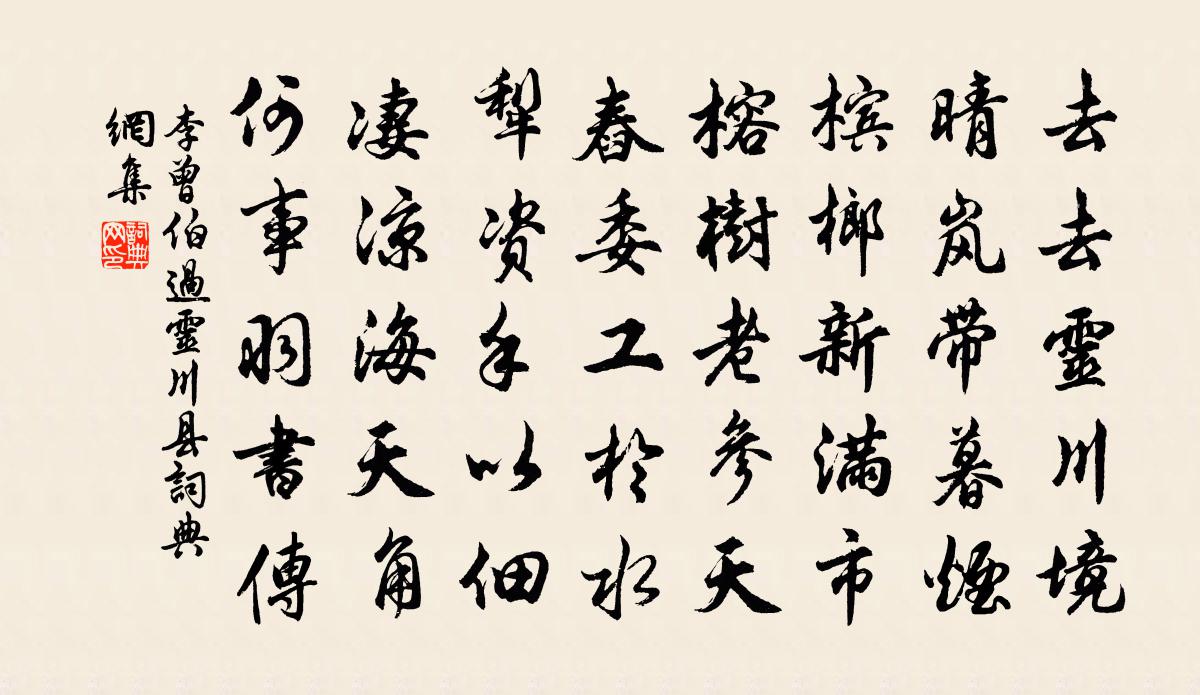 去去靈川境
晴岚带暮煙
槟榔新滿市
榕樹老參天
舂委工於水
犁资手以佃
凄涼海天角
何事羽書傳
李曾伯過靈川县詞典
網集
詞典
网印